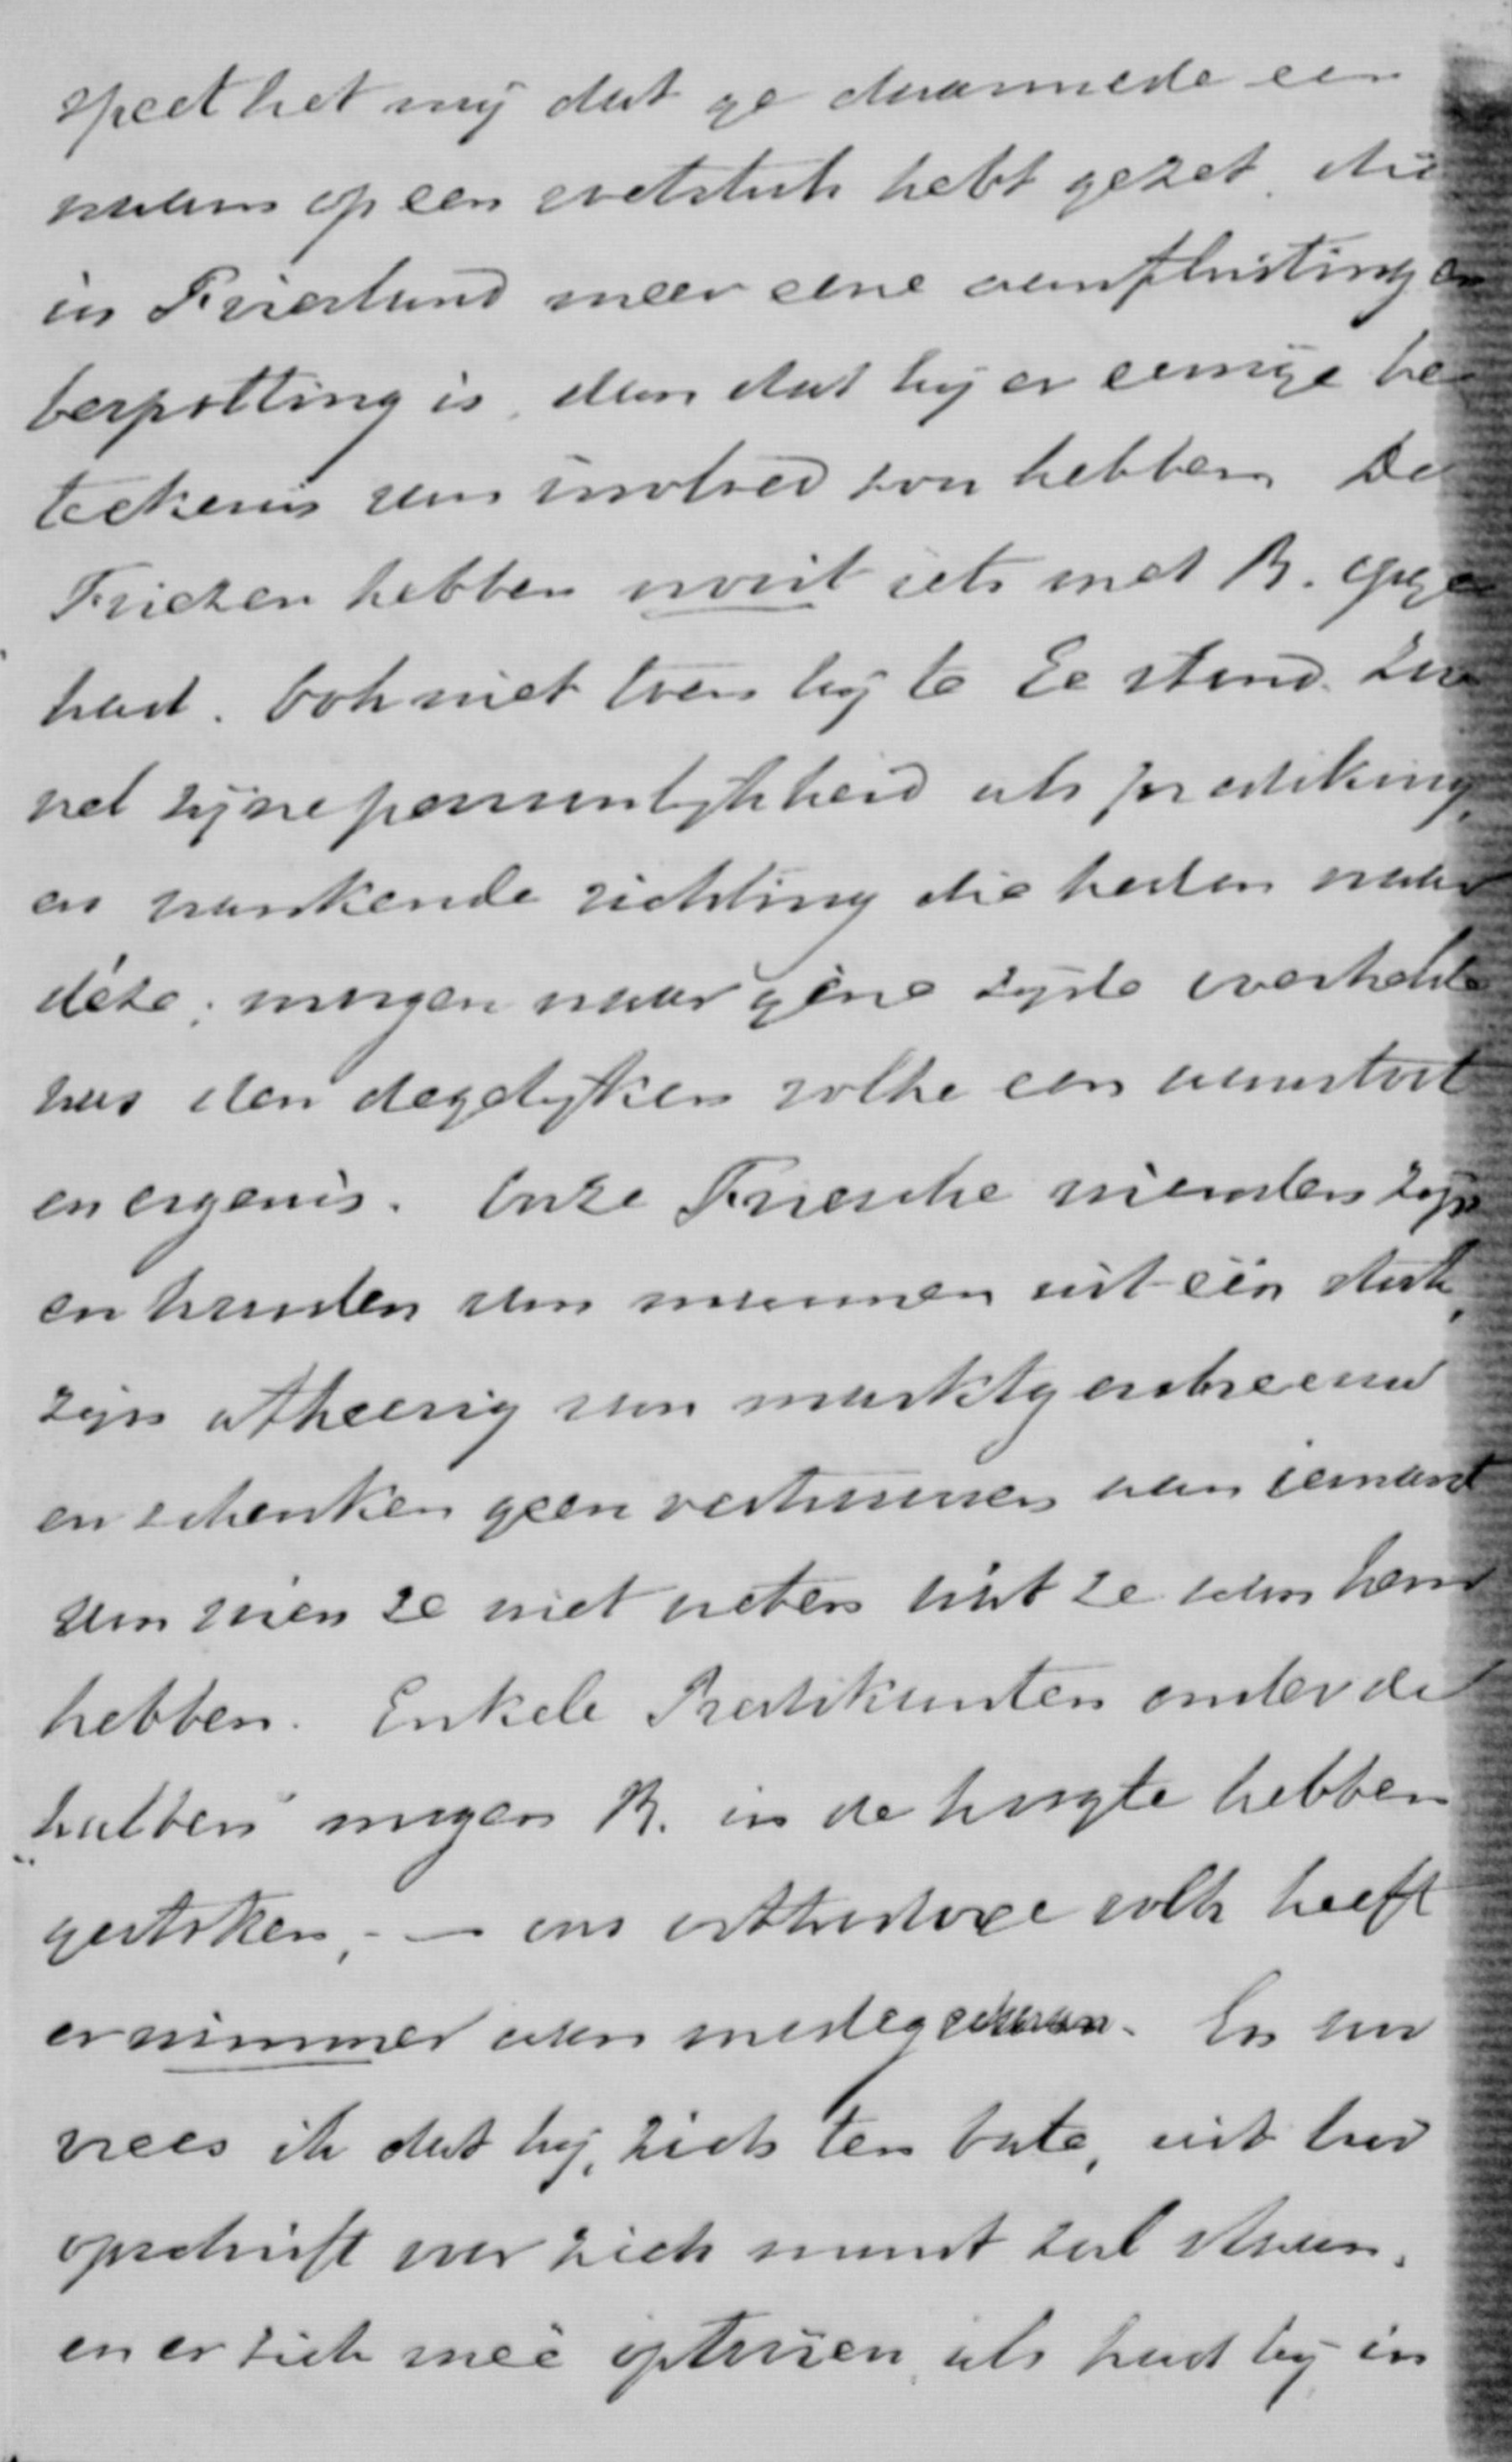 speet het mij dat ge daarmede een
naam op een voetstuk hebt gezet, die
in Friesland meer eene aanfluiting en
bespotting is, dan dat hij er eenige be
teekenis van invloed zou hebben. De
Friezen hebben nooit iets met B. opge
had. Ook niet toen hij te Ee stond. Zoo
wel zijne persoonlijkheid als prediking,
en wankende richting die heden naar
déze, morgen naar gène zijde overhelde
was den degelijken volke een aanstoot
en ergenis. Onze Friesche vrienden zijn
en houden van mannen uit één stuk,
zijn afkeerig van marktgeschreeuw
en schenken geen vertrouwen aan iemand
van wien ze niet weten wát ze aan hem
hebben. Enkele Predikanten onder de
„halven" mogen B. in de hoogte hebben
gestoken, — ons orthodoxe volk heeft
er nimmer aan medegedaan. En nu
vrees ik dat hij, zich ten bate, uit Uw
opschrift voor zich munt zal slaan,
en er zich meê optooien, als had hij in